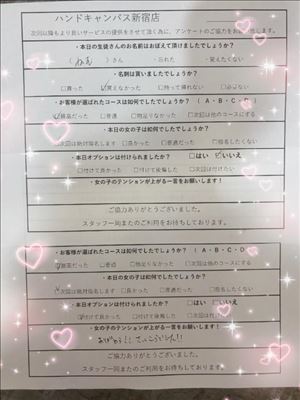 ハンドキャンパス新宿店
次回以降もより良いサービスの提供をさせて頂く為に、アンケートのご協力をおねがいします。
・本日の生徒さんのお名前をおぼえて頂けましたでしょうか?
( )さん ・忘れた ・覚えてたくない
・名刺は貰いましたでしょうか?
□貰った □貰えなかった □持って帰れない □必要ない
・お客様が選ばれたコースは如何でしたでしょうか? (A・B・C・D)
□最高だった □普通 □物足りなかった □次回は他のコースにする
・本日の女の子は如何でしたでしょうか?
□次回は絶対指名します □良かった □普通だった □指名したくない
・本日オプションは付けられましたか? □はい □いいえ
□付けて良かった □付けて後悔した □次回は付けたい
・女の子のテンションが上がる一言をお願いします!
ご協力ありがとうございました。
スタッフ一同またのご利用をお待ちしております。
・お客様が選ばれたコースは如何でしたでしょうか? (A・B・C・D)
□最高だった □普通 □物足りなかった □次回は他のコースにする
・本日の女の子は如何でしたでしょうか?
□次回は絶対指名します □良かった □普通だった □指名したくない
・本日オプションは付けられましたか? □はい □いいえ
□付けて良かった □付けて後悔した □次回は付けたい
・女の子のテンションが上がる一言をお願いします!
ありがとう!
ご協力ありがとうございました。
スタッフ一同またのご利用をお待ちしております。